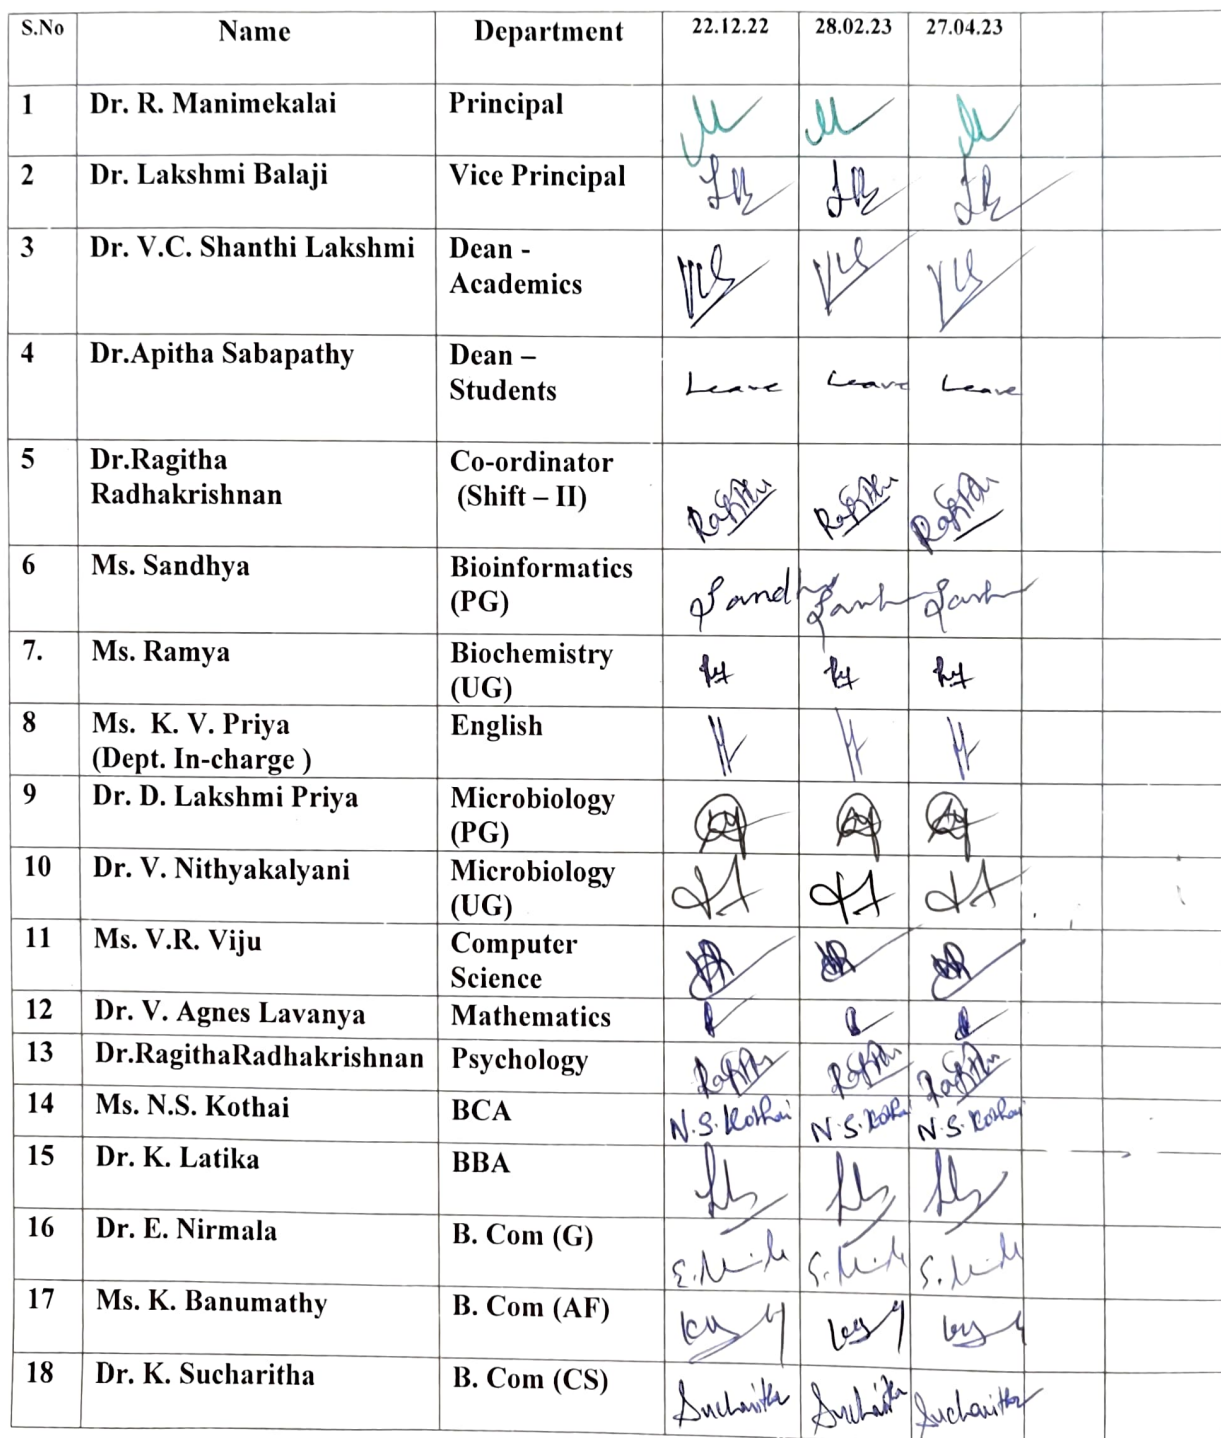 S.No Name Department 22.12.22 28.02.23 27.04.23
1 Dr. R. Manimekalai Principal
2 Dr. Lakshmi Balaji Vice Principal
3 Dr. V.C. Shanthi Lakshmi Dean -
Academics
4 Dr.Apitha Sabapathy Dean –
Students Leave Leave Leave
5 Dr.Ragitha Co-ordinator
Radhakrishnan (Shift – II)
6 Ms. Sandhya Bioinformatics
(PG)
7. Ms. Ramya Biochemistry
(UG)
8 Ms. K. V. Priya English
(Dept. In-charge )
9 Dr. D. Lakshmi Priya Microbiology
(PG)
10 Dr. V. Nithyakalyani Microbiology
(UG)
11 Ms. V.R. Viju Computer
Science
12 Dr. V. Agnes Lavanya Mathematics
13 Dr.RagithaRadhakrishnan Psychology
14 Ms. N.S. Kothai BCA N.S. Kothai N.S. Kothai N.S. Kothai
15 Dr. K. Latika BBA
16 Dr. E. Nirmala B. Com (G)
17 Ms. K. Banumathy B. Com (AF)
18 Dr. K. Sucharitha B. Com (CS) Sucharitha Sucharitha Sucharitha